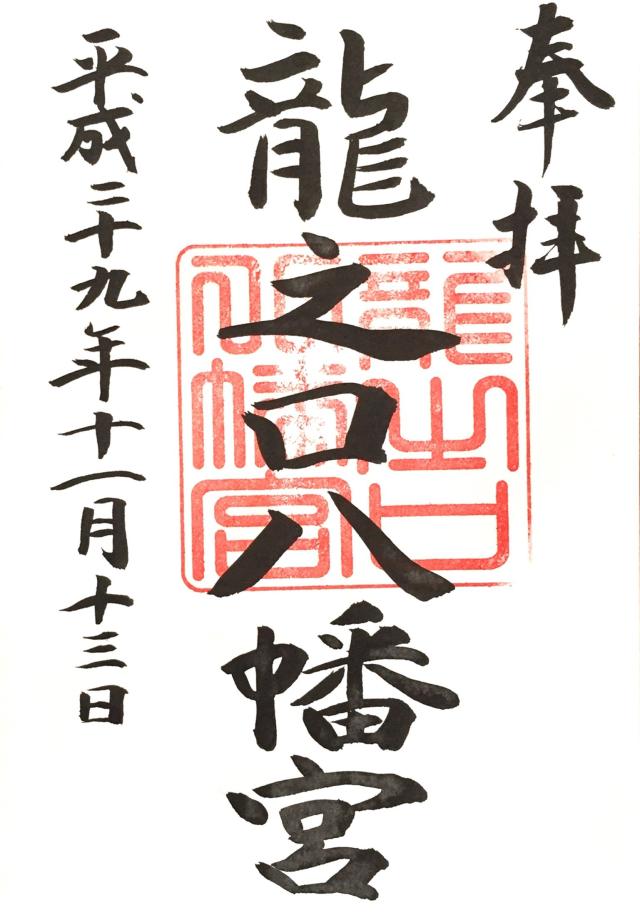 奉拝
龍之口八幡宮
龍之口
八幡宮
平成二十九年十一月十三日